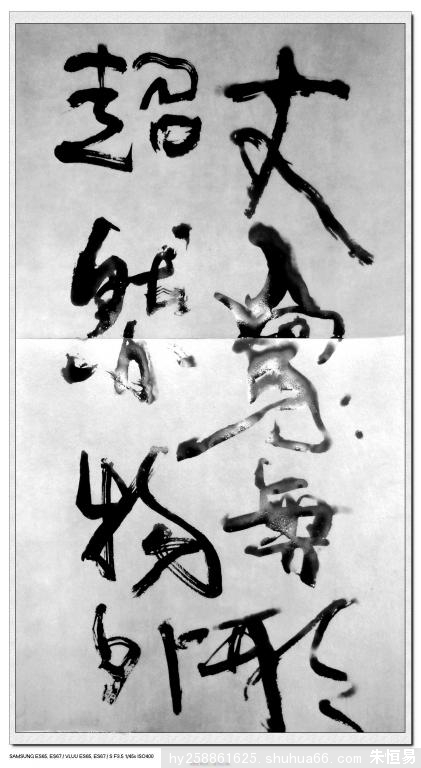 大象無形
超然物外
SAMSUNG ES65, ES67 / VLUU ES65, ES67 / S F3.5 1/45s ISO400
hy258861625.shuhua66.com 朱恒易